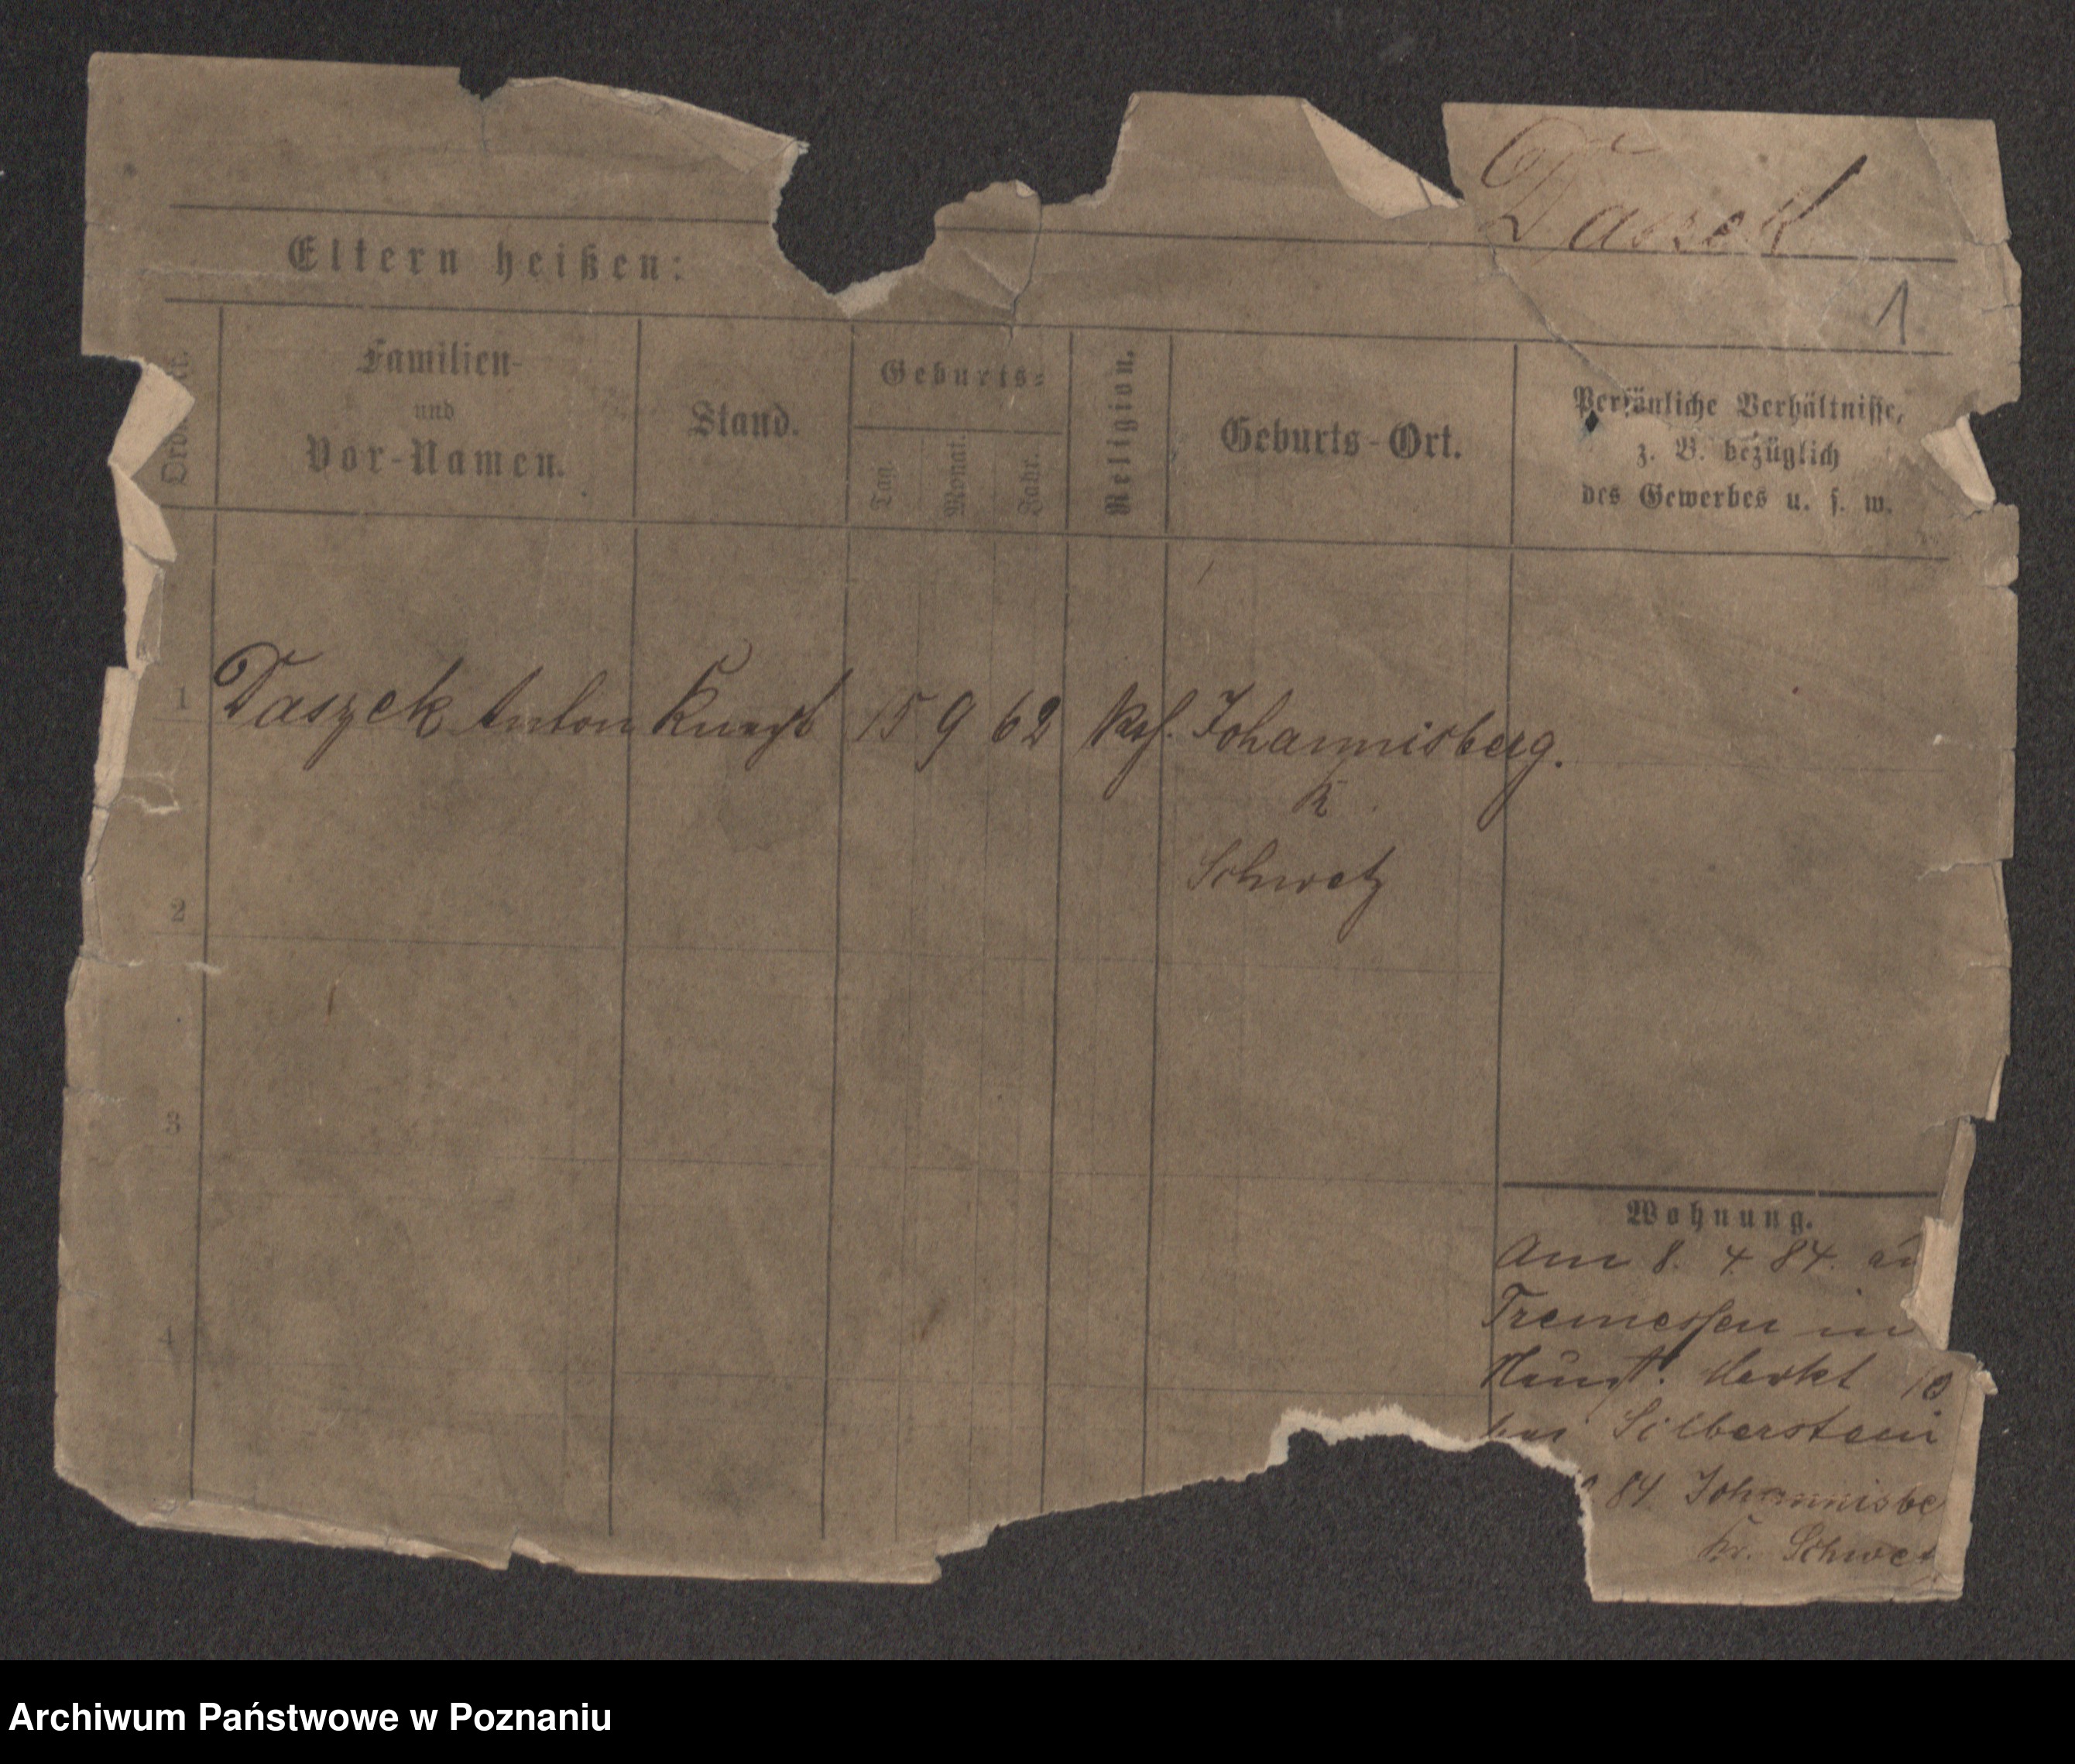 Daszek
Eltern heißen:
1
Familien-
und
Vor-Namen.
Stand.
Geburts-
Tag.
Monat.
Jahr.
Religion.
Geburts-Ort.
Persönliche Verhältnisse,
z. B. bezüglich
des Gewerbes u. s. w.
1 Daszek Anton Knecht 15 9 62 Johannisberg.
K
Schwetz
2
3
4
Wohnung.
Am 8. 4 84.
Tremessen in
10
bei Silberstein
84 Johannisbe
Kr. Schwet
Archiwum Państwowe w Poznaniu